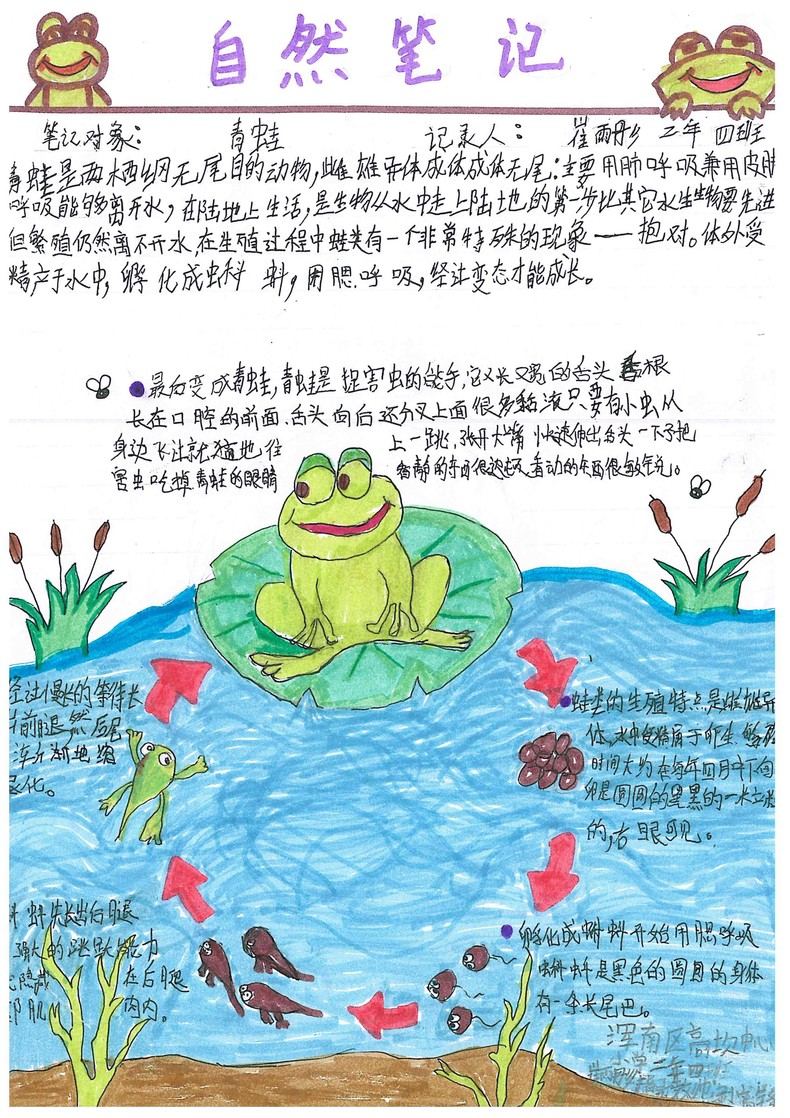 自然笔记
笔记对象: 青蛙 记录人: 崔雨彤 二年四班
青蛙是两栖纲无尾目的动物,雌雄异体成体成体无尾:主要用肺呼吸兼用皮肤
呼吸能够离开水,在陆地上生活,是生物从水中走上陆地的第一步比其它水生生物要先进
但繁殖仍然离不开水,在生殖过程中蛙类有一个非常特殊的现象——抱对。体外受
精产于水中,孵化成虫科蚪,用腮呼吸,经过变态才能成长。
最后变成青蛙,青蛙是捉害虫的能手,它又长又宽的舌头 根
长在口腔的前面舌头向后还分叉上面很多黏液只要有小虫从
身边飞过就猛地往上一跳,张开大嘴快速伸出舌头一下子把
害虫吃掉青蛙的眼睛看静的东西很迟钝看动的东西很敏锐。
蛙类的生殖特点是雌雄异
体,水中受精属于卵生
时间大约在每年四月中下旬
卵是圆圆的黑黑的一米
的,右眼可见。
孵化成蝌蚪开始用腮呼吸
蝌蚪是黑色的圆圆的身体
有一条长尾巴。
蚪先长出后腿
强大的跳跃能力
隐藏在后腿
肌肉内。
经过漫长的等待长
前腿然后尾
渐渐地缩
退化。
浑南区高坎中心
小学二年四班